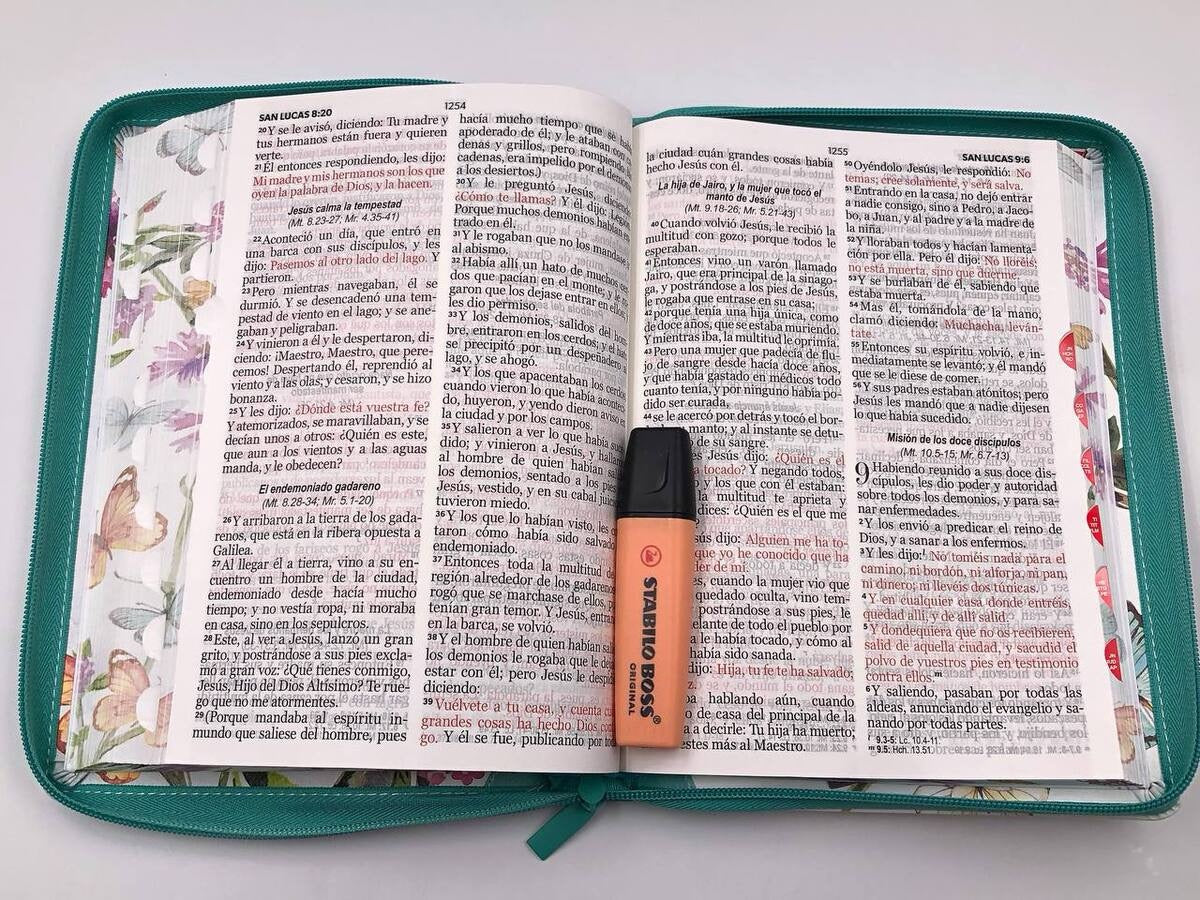 SAN LUCAS 8:20
1254
20 Y se le avisó, diciendo: Tu madre y
tus hermanos están fuera y quieren
verte.
21 Él entonces respondiendo, les dijo:
Mi madre y mis hermanos son los que
oyen la palabra de Dios, y la hacen.
Jesús calma la tempestad
(Mt. 8.23-27; Mr. 4.35-41)
22 Aconteció un día, que entró en
una barca con sus discípulos, y les
dijo: Pasemos al otro lado del lago. Y
partieron.
23 Pero mientras navegaban, él se
durmió. Y se desencadenó una tem-
pestad de viento en el lago; y se ane-
gaban y peligraban.
24 Y vinieron a él y le despertaron, di-
ciendo: ¡Maestro, Maestro, que pere-
cemos! Despertando él, reprendió al
viento y a las olas; y cesaron, y se hizo
bonanza.
25 Y les dijo: ¿Dónde está vuestra fe?
Y atemorizados, se maravillaban, y se
decían unos a otros: ¿Quién es este,
que aun a los vientos y a las aguas
manda, y le obedecen?
El endemoniado gadareno
(Mt. 8.28-34; Mr. 5.1-20)
26 Y arribaron a la tierra de los gada-
renos, que está en la ribera opuesta a
Galilea.
27 Al llegar él a tierra, vino a su en-
cuentro un hombre de la ciudad,
endemoniado desde hacía mucho
tiempo; y no vestía ropa, ni moraba
en casa, sino en los sepulcros.
28 Este, al ver a Jesús, lanzó un gran
grito, y postrándose a sus pies excla-
mó a gran voz: ¿Qué tienes conmigo,
Jesús, Hijo del Dios Altísimo? Te rue-
go que no me atormentes.
29 (Porque mandaba al espíritu in-
mundo que saliese del hombre, pues
hacía mucho tiempo que se
apoderado de él; y le ataban con
denas y grillos, pero rompiendo
cadenas, era impelido por el demonio
a los desiertos.)
30 Y le preguntó Jesús, diciendo
¿Cómo te llamas? Y él dijo:
Porque muchos demonios habían
trado en él.
31 Y le rogaban que no los mandase
al abismo.
32 Había allí un hato de muchos
dos que pacían en el monte; y le
garon que los dejase entrar en ellos;
les dio permiso.
33 Y los demonios, salidos del
bre, entraron en los cerdos; y el
se precipitó por un despeñadero
lago, y se ahogó.
34 Y los que apacentaban los cerdos
cuando vieron lo que había
do, huyeron, y yendo dieron aviso
la ciudad y por los campos.
35 Y salieron a ver lo que había
dido; y vinieron a Jesús, y
al hombre de quien habían
los demonios, sentado a los pies
Jesús, vestido, y en su cabal juicio
tuvieron miedo.
36 Y los que lo habían visto, les
taron cómo había sido salvado
endemoniado.
37 Entonces toda la multitud de
región alrededor de los gadarenos
rogó que se marchase de ellos,
tenían gran temor. Y Jesús,
en la barca, se volvió.
38 Y el hombre de quien habían
los demonios le rogaba que le
estar con él; pero Jesús le
diciendo:
39 Vuélvete a tu casa, y cuenta
grandes cosas ha hecho Dios
go. Y él se fue, publicando por
1255
SAN LUCAS 9:6
la ciudad cuán grandes cosas había
hecho Jesús con él.
La hija de Jairo, y la mujer que tocó el
manto de Jesús
(Mt. 9.18-26; Mr. 5.21-43)
40 Cuando volvió Jesús, le recibió la
multitud con gozo; porque todos le
esperaban.
41 Entonces vino un varón llamado
Jairo, que era principal de la sinago-
ga, y postrándose a los pies de Jesús,
le rogaba que entrase en su casa;
42 porque tenía una hija única, como
de doce años, que se estaba muriendo.
Y mientras iba, la multitud le oprimía.
43 Pero una mujer que padecía de flu-
jo de sangre desde hacía doce años,
y que había gastado en médicos todo
cuanto tenía, y por ninguno había po-
dido ser curada,
44 se le acercó por detrás y tocó el bor-
manto; y al instante se detu-
de su sangre.
es Jesús dijo: ¿Quién es el
a tocado? Y negando todos,
y los que con él estaban:
multitud te aprieta y
dices: ¿Quién es el que me
dijo: Alguien me ha to-
que yo he conocido que ha
der de mí.
es, cuando la mujer vio que
quedado oculta, vino tem-
postrándose a sus pies, le
lante de todo el pueblo por
le había tocado, y cómo al
había sido sanada.
dijo: Hija, tu fe te ha salvado;
hablando aún, cuando
o de casa del principal de la
a decirle: Tu hija ha muerto;
estes más al Maestro.
50 Oyéndolo Jesús, le respondió: No
temas; cree solamente, y será salva.
51 Entrando en la casa, no dejó entrar
a nadie consigo, sino a Pedro, a Jaco-
bo, a Juan, y al padre y a la madre de
la niña.
52 Y lloraban todos y hacían lamenta-
ción por ella. Pero él dijo: No lloréis;
no está muerta, sino que duerme.
53 Y se burlaban de él, sabiendo que
estaba muerta.
54 Mas él, tomándola de la mano,
clamó diciendo: Muchacha, leván-
tate.
55 Entonces su espíritu volvió, e in-
mediatamente se levantó; y él mandó
que se le diese de comer.
56 Y sus padres estaban atónitos; pero
Jesús les mandó que a nadie dijesen
lo que había sucedido.
Misión de los doce discípulos
(Mt. 10.5-15; Mr. 6.7-13)
9 Habiendo reunido a sus doce dis-
cípulos, les dio poder y autoridad
sobre todos los demonios, y para sa-
nar enfermedades.
2 Y los envió a predicar el reino de
Dios, y a sanar a los enfermos.
3 Y les dijo: No toméis nada para el
camino, ni bordón, ni alforja, ni pan,
ni dinero; ni llevéis dos túnicas.
4 Y en cualquier casa donde entréis,
quedad allí, y de allí salid.
5 Y dondequiera que no os recibieren,
salid de aquella ciudad, y sacudid el
polvo de vuestros pies en testimonio
contra ellos.m
6 Y saliendo, pasaban por todas las
aldeas, anunciando el evangelio y sa-
nando por todas partes.
l 9.3-5: Lc. 10.4-11.
m 9.5: Hch. 13.51.
STABILO BOSS®
ORIGINAL